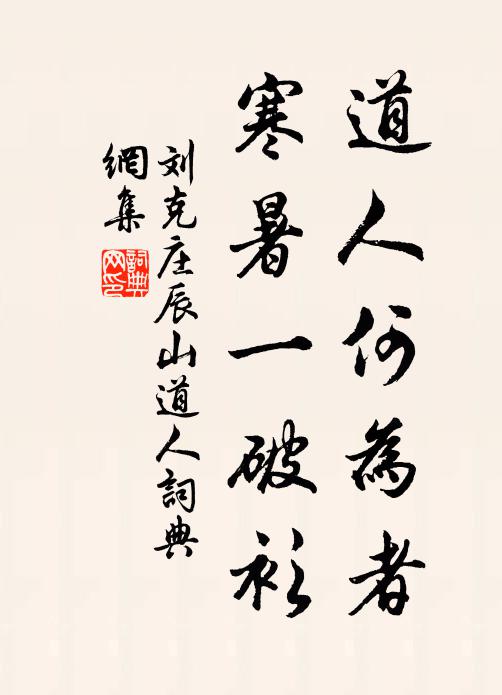 道人何為者
寒暑一破衫
刘克庄辰山道人詞典
網集
詞典
网印